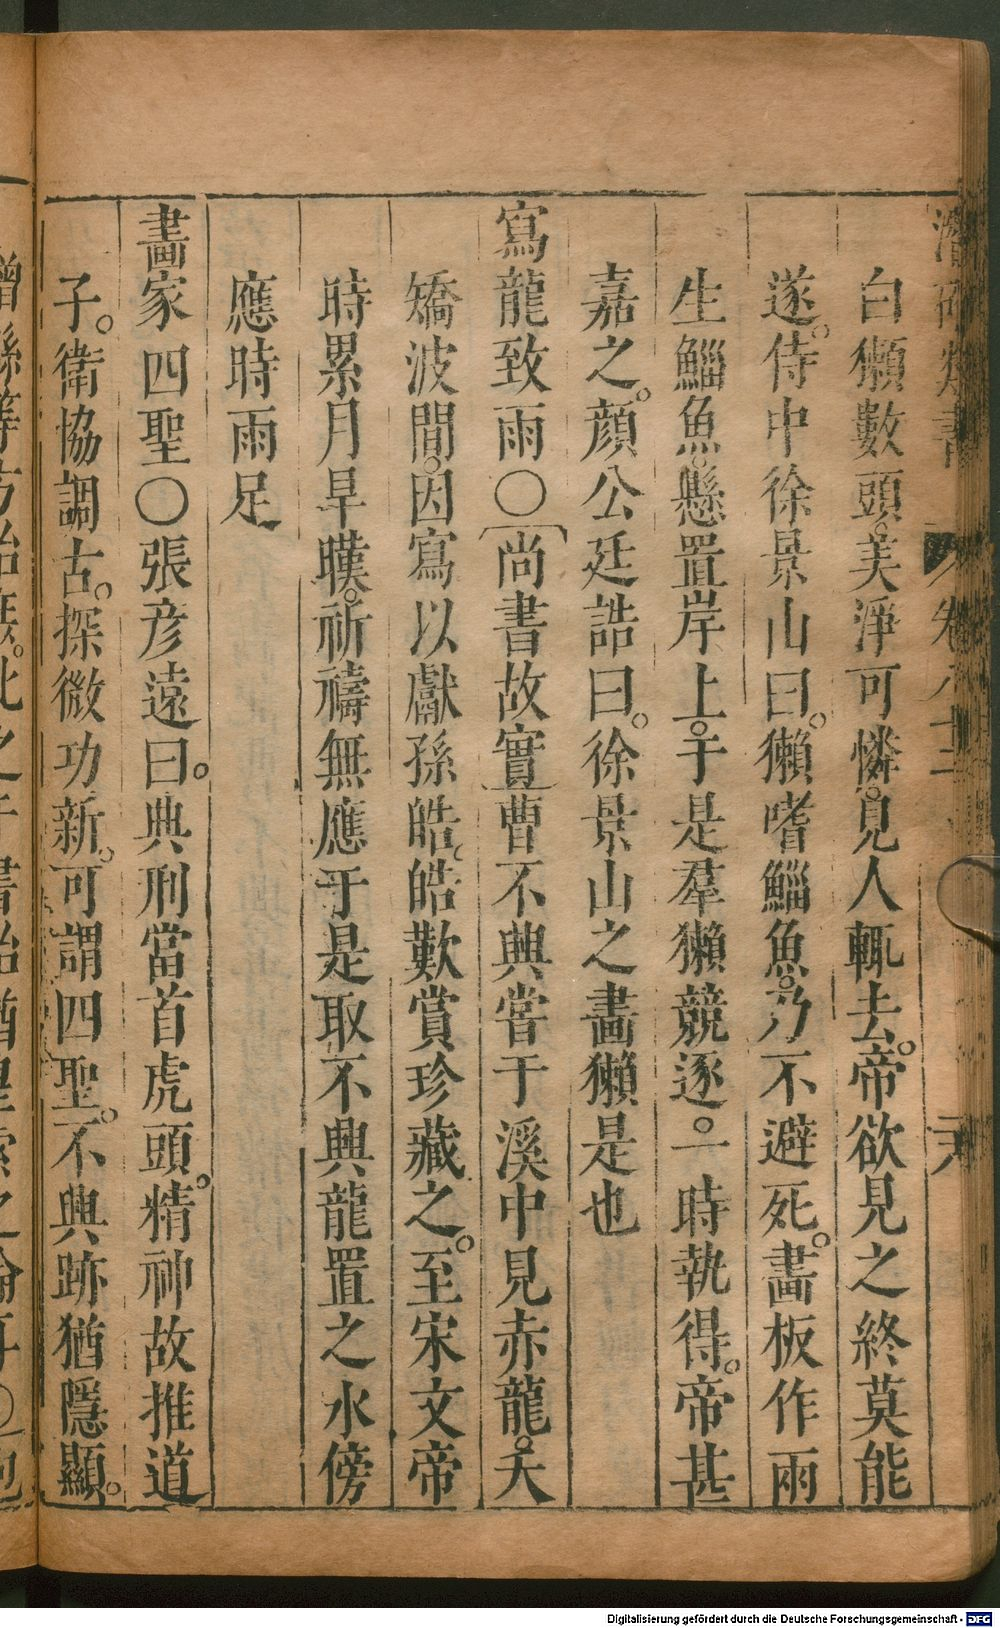 潛确類書 卷八十二
白獺數頭。美淨可憐。見人輒去。帝欲見之終莫能
遂。侍中徐景山曰。獺嗜鯔魚。乃不避死。畫板作兩
生鯔魚。懸置岸上。于是羣獺競逐。一時執得。帝甚
嘉之。顏公廷誥曰。徐景山之畫獺是也
寫龍致雨〇〔尚書故實〕曹不興嘗于溪中見赤龍。夭
矯波間。因寫以獻孫皓。皓歎賞珍藏之。至宋文帝
時累月旱暵。祈禱無應于是取不興龍置之水傍
應時雨足
畫家四聖〇張彥遠曰。典刑當首虎頭。精神故推道
子。衛協調古。探微功新。可謂四聖。不興跡猶隱顯。
Digitalisierung gefördert durch die Deutsche Forschungsgemeinschaft - DFG